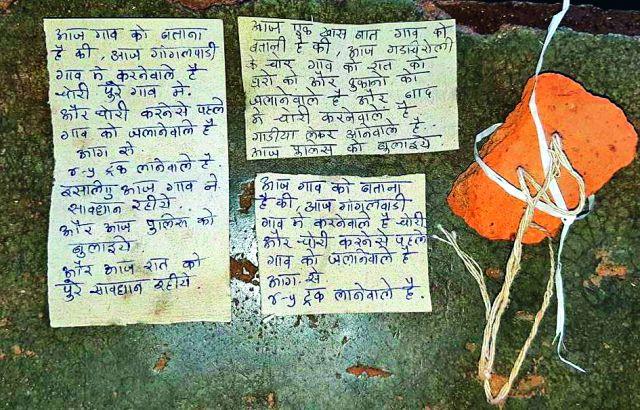 आज गाव को बताना
है की, आज गांगलवाडी
गाव मे करनेवाले है
चोरी पुरे गाव मे.
और चोरी करनेसे पहले
गाव को जलानेवाले है
आग से.
४-५ ट्रक लानेवाले है.
इसालेए आज गाव ने
सावधान रहीये.
और आज पुलिस को
बुलाइये
और आज रात को
पुरे सावधान रहीये
आज एक खास बात गाव को
बतानी है की, आज गडायसेली
के चोर गाव को रात को
घरो को और दुकानो को
जलानेवाले है और बाद
मे चोरी करनेवाले है.
गाडीया लेकर आनेवाले है.
आज पुलिस को बुलाइये
आज गाव को बताना
है की, आज गांगलवाडी
गाव मे करनेवाले है चोरी
और चोरी करनेसे पहले
गाव को जलानेवाले है
आग से
४-५ ट्रक लानेवाले है.